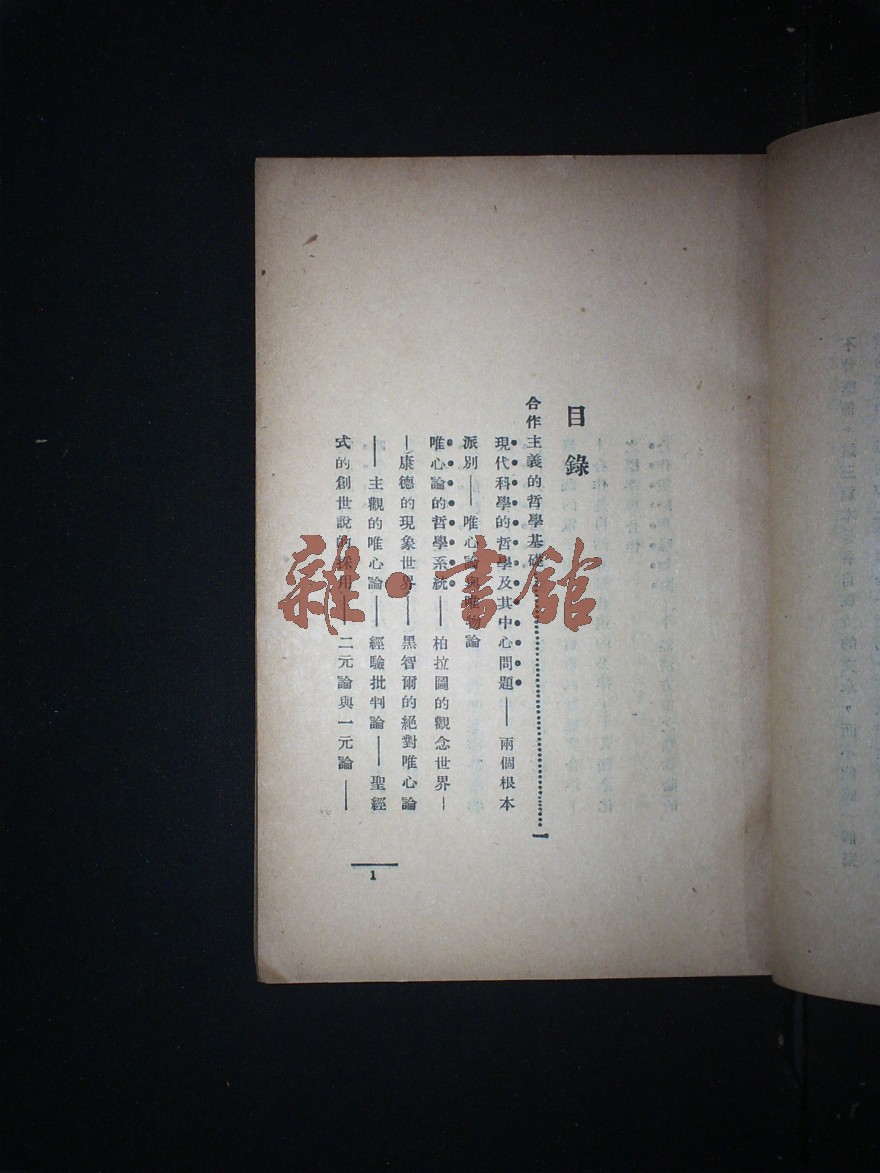 目錄
合作主義的哲學基礎⋯⋯⋯⋯⋯⋯一
現代科學的哲學及其中心問題——兩個根本
派別——唯心論與唯物論
唯心論的哲學系統——柏拉圖的觀念世界—
—康德的現象世界——黑智爾的絕對唯心論
——主觀的唯心論——經驗批判論——聖經
式的創世說的採用——二元論與一元論——
1
雜·書館